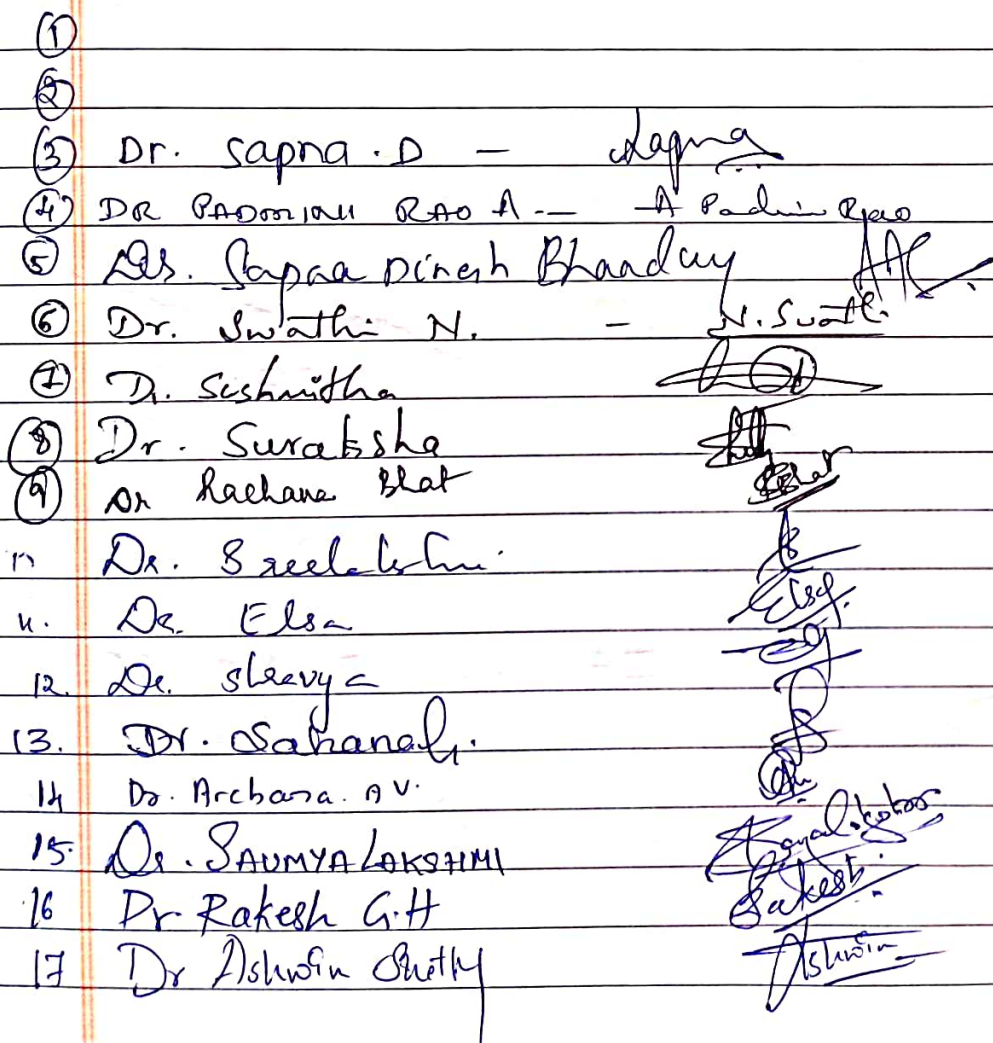 1
2
3 Dr. Sapna . D - Sapna
4 DR PADMINI RAO A -- A Padmini Rao
5 Drs. Sapna Dinesh Bhandary
6 Dr. Swathi N. - N. Swathi
7 Dr. Sushmitha
8 Dr. Suraksha
9 Dr Rachana Bhat Bhat
10 Dr. Sreelakshmi
11. Dr. Elsa Elsa
12. Dr. Shravya
13. Dr. Sahana G.
14 Dr. Archana. A V.
15. Dr. SAUMYA LAKSHMI
16 Dr Rakesh G.H Rakesh
17 Dr Ashwin Shetty Ashwin